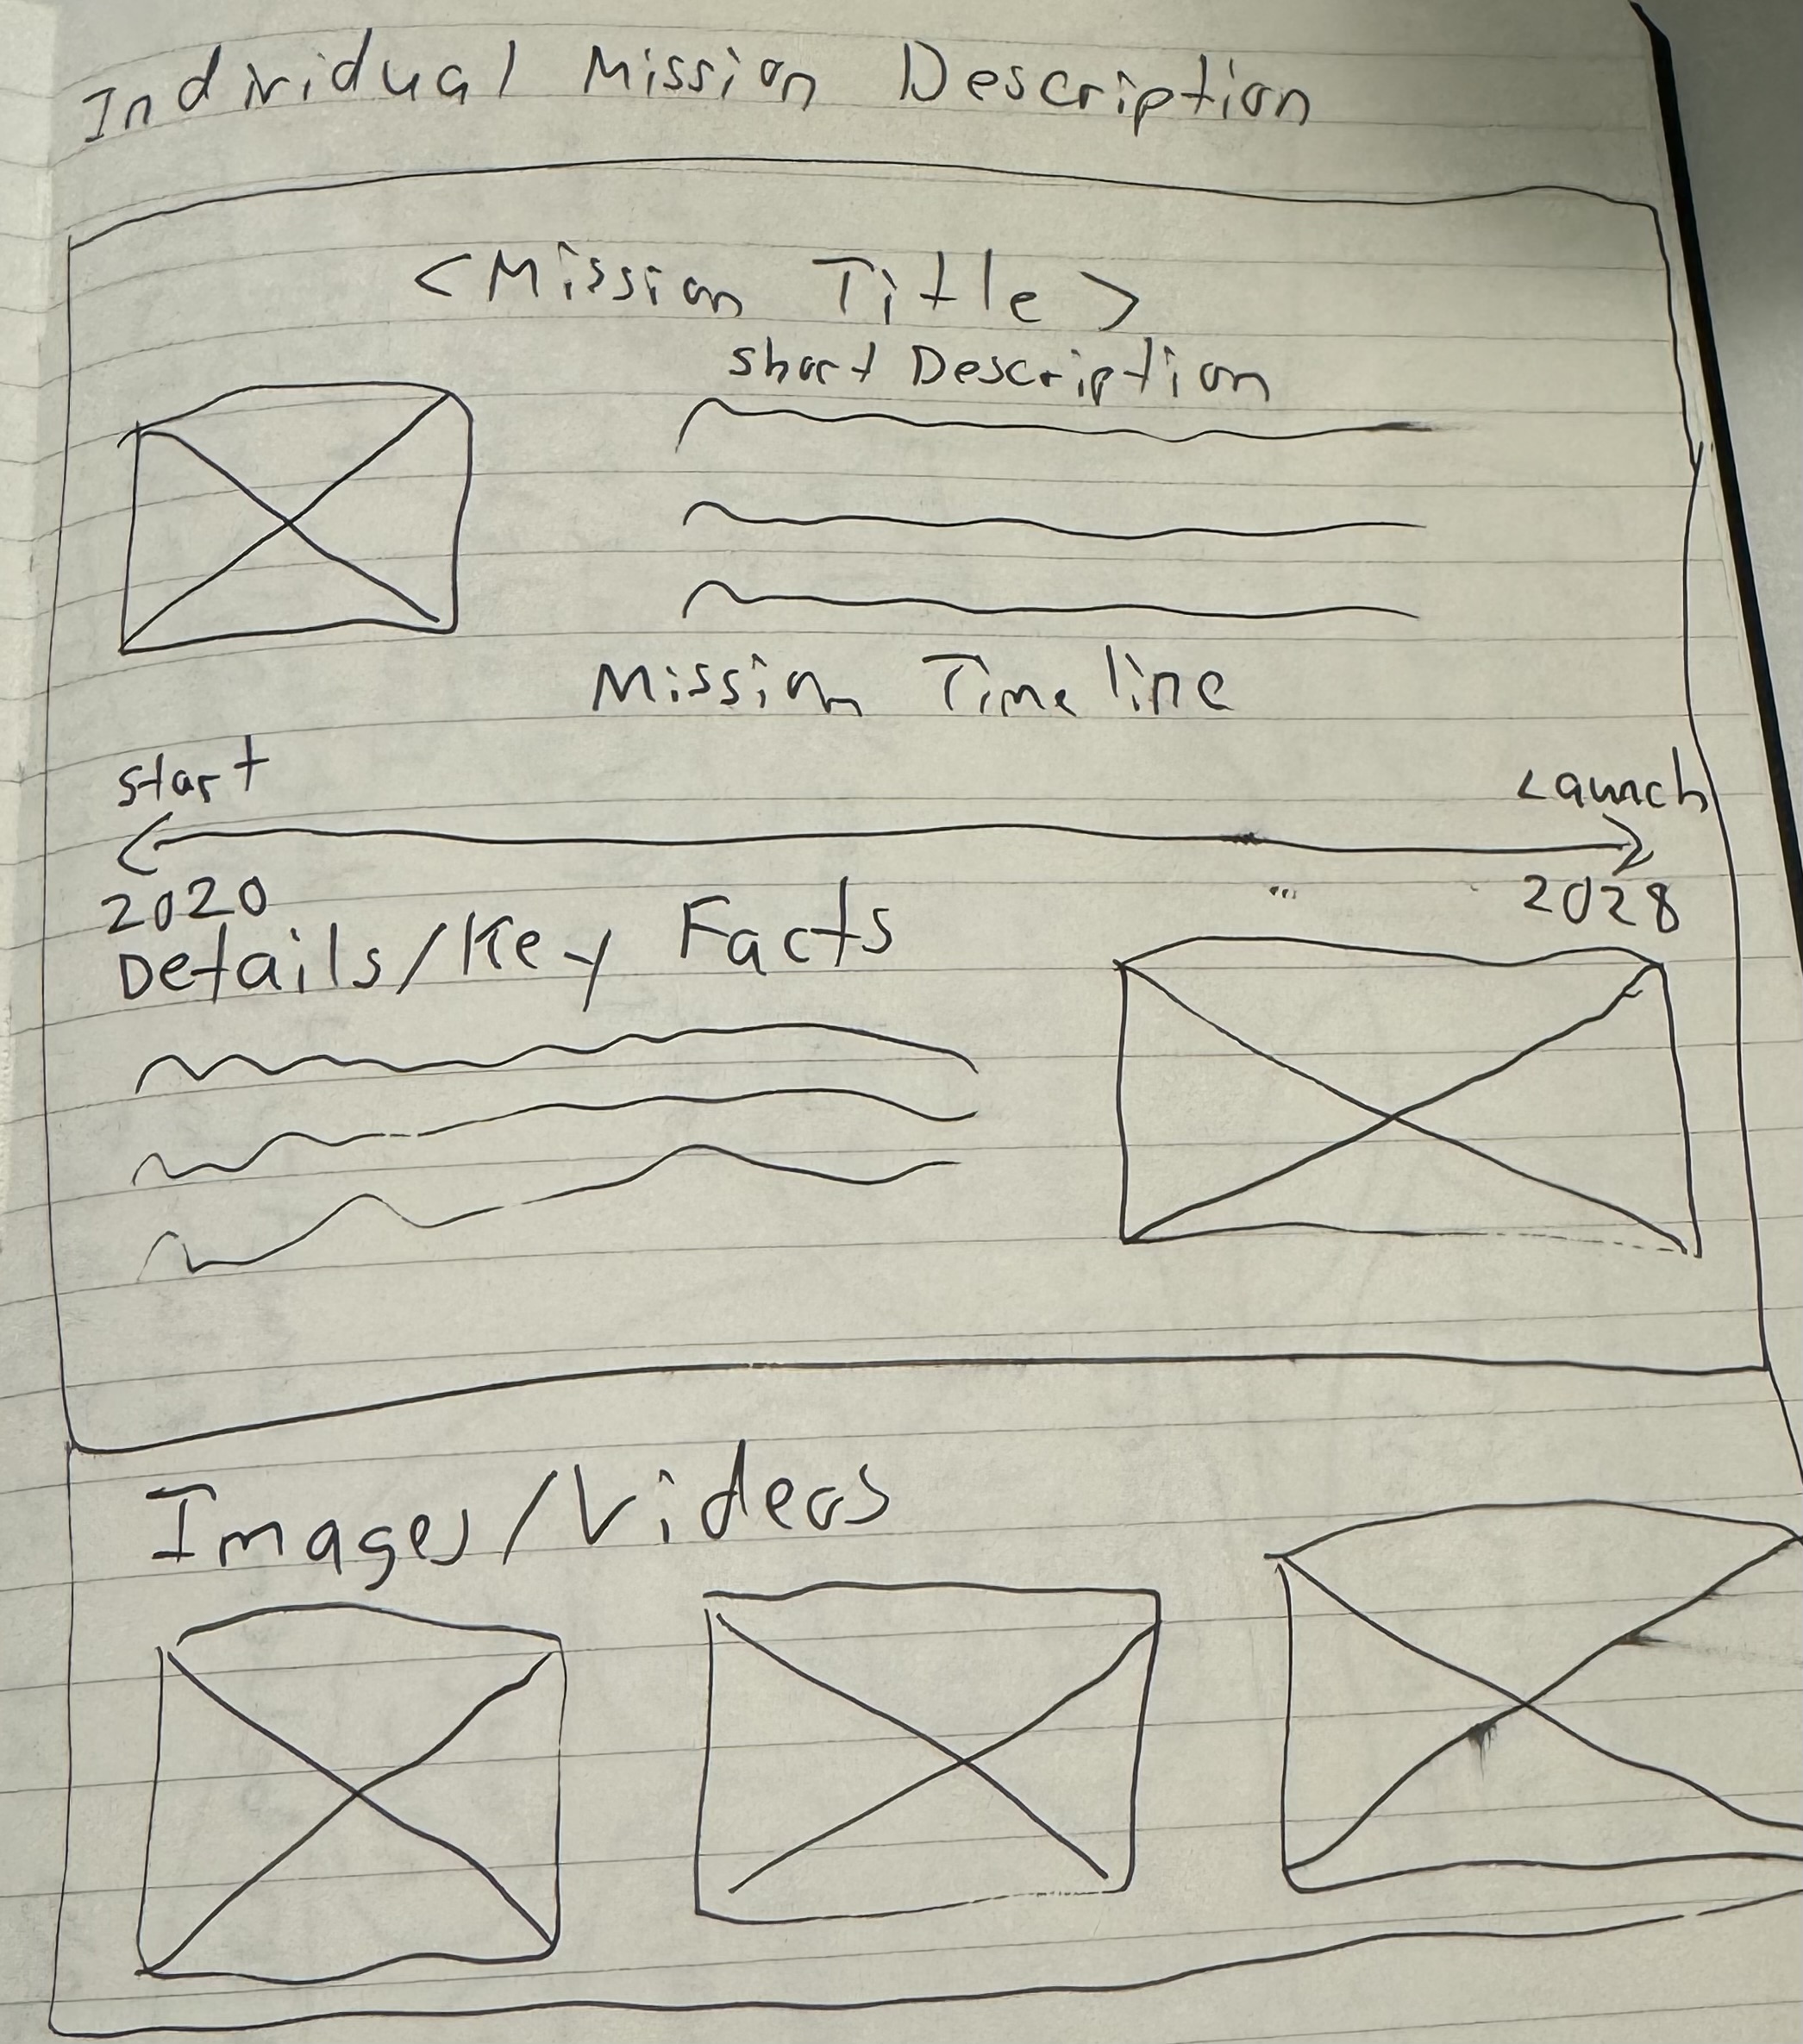 Individual Mission Description
<Mission Title>
Short Description
Mission Timeline
Start
Launch
2020
2028
Details/Key Facts
Images/Videos